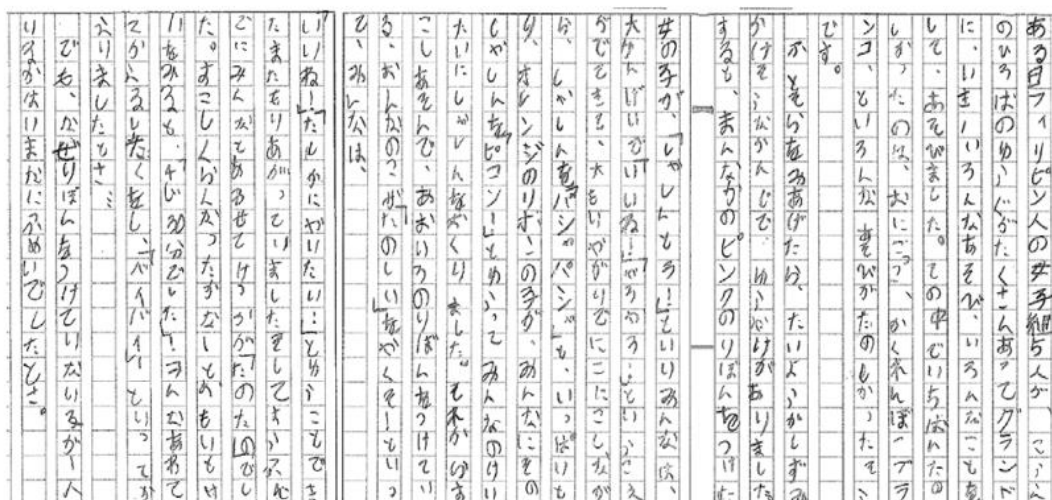 ある日フィリピン人の女子組5人が こうえ
のひろばのゆうぐがたくさんあってグランド
に、いき いろんなあそび、いろんなことを
して、あそびました。その中でいちばんたの
しかったのは、おにごっ かくれんぼ、ブラ
ンコ、といろんな 遊びがたのしかったそ
です。
ふとそらをみあげたら、たいようがしずみ
かけそうなかんじで ゆうやけがありました
すると、まんなかのピンクのりぼんをつけた
女の子が、「しゃしんとろう!」といいみんなは、
大さんげいで「いいね!やろうやろう」という
がでてきて、大もりやがりでにこにこしなが
ら、しゃしんを「パシャパシャ」と、いっぱいと
り、オレンジのリボンの子が、みんなにその
しゃしんを「ピコン!」とゆって みんなのけい
たいにしゃしんをおくりました。それからす
こしあそんで、あおいろのりぼんをつけてい
る、おんなのこが「たのしいなぁくそーといっ
て、みんなは、
いいね!」「たしかにやりたい!」とゆうことで
たまたもりあがっていましたそしてさ
でにみんなとあるせてけっかが「たのた」ので
た。すこしくらんかったがなーとおもいとけ
いをみると、「4じ30分でした」!みんなあわて
てかえるしたくをし、「バイバイ」といってか
えりましたとさ…
でも、なぜりぼんをつけていないるがー人
りなかはいまだにふめいでしたとさ。